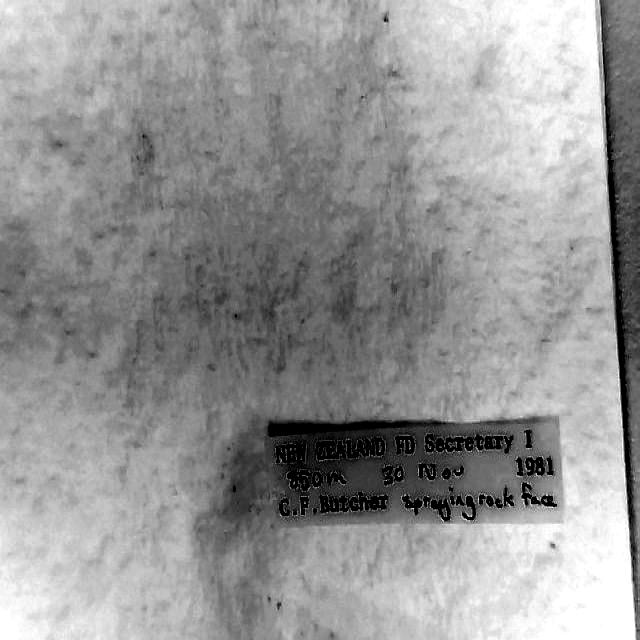 NEW ZEALAND FD Secretary I
880m 30 Nov 1981
C.F.Butcher spraying rock face